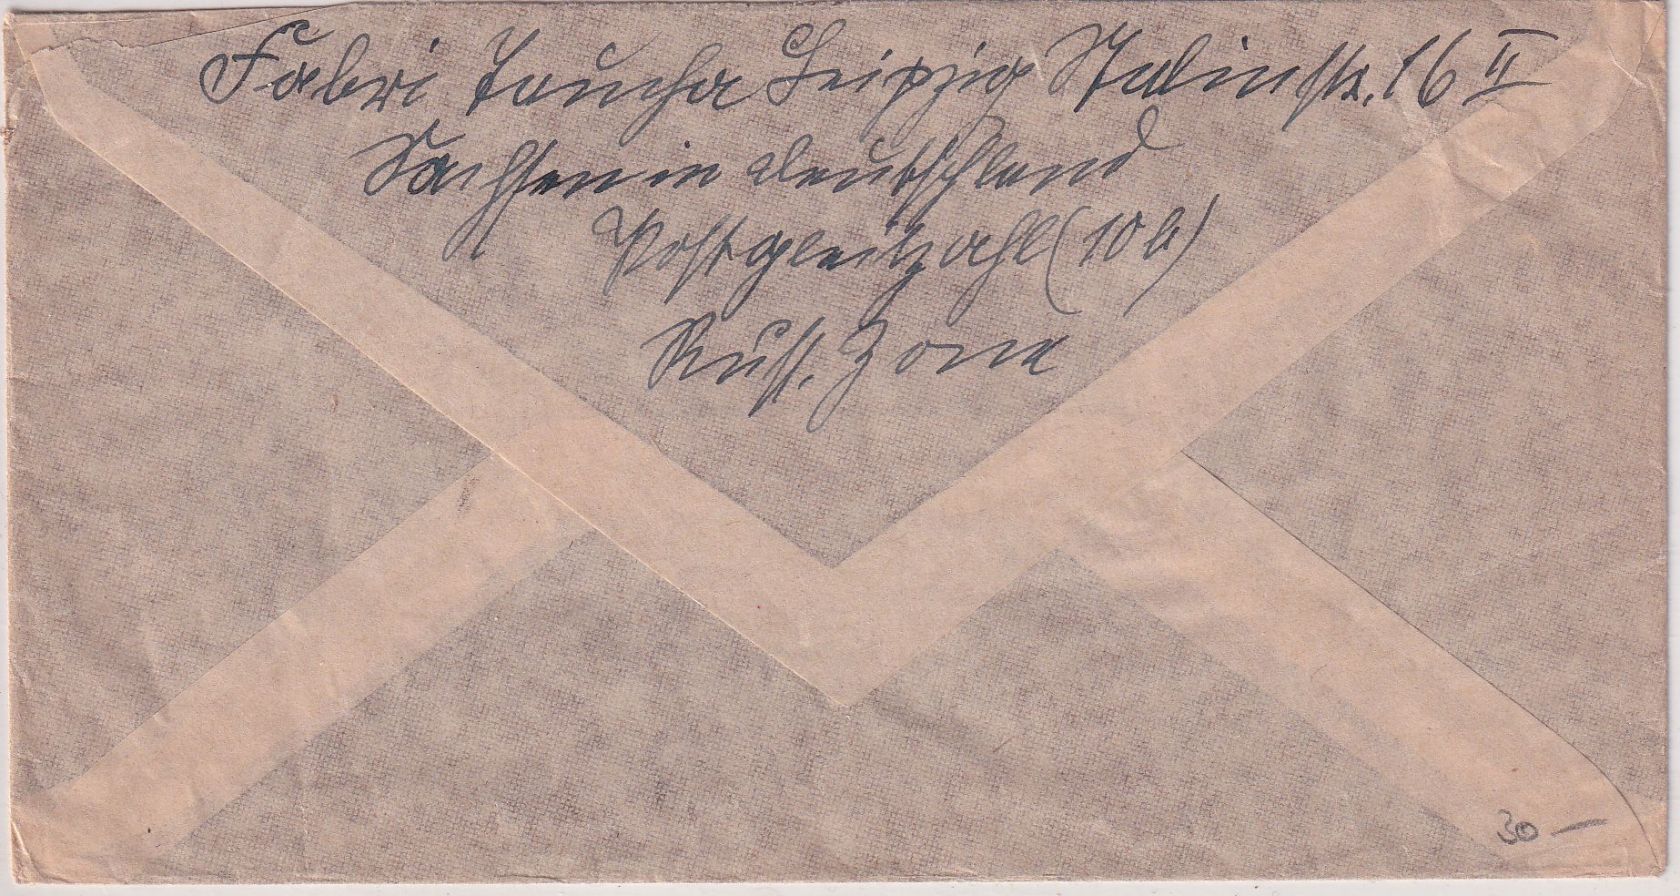 Fabri Taucha Leipzig Stalinstr. 16 II
Sachsen in Deutschland
Postgleitzahl (10b)
Russ. Zone
30 —